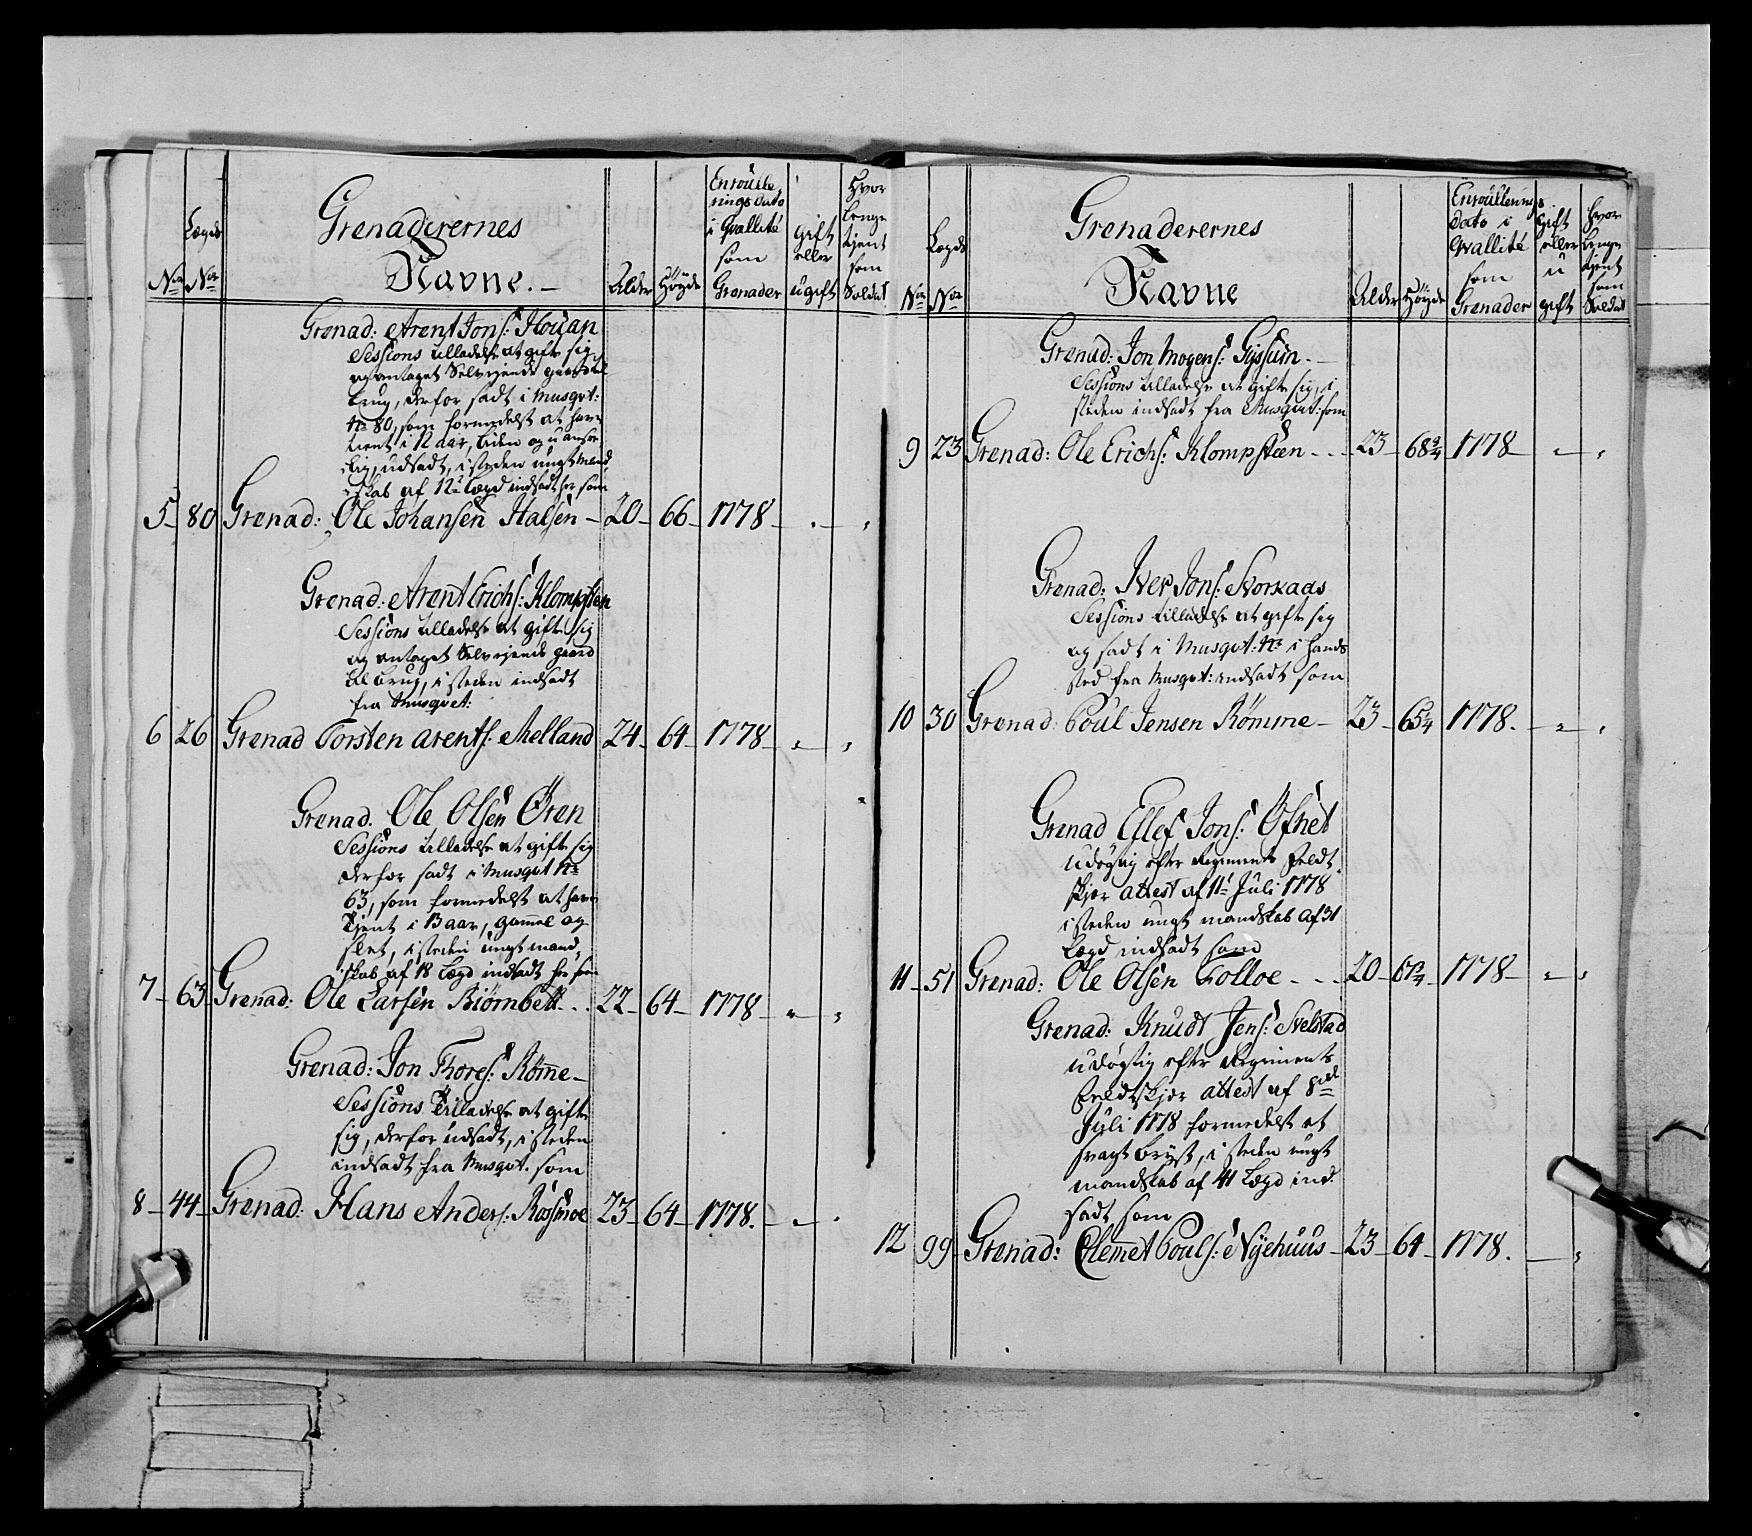 No
Lægds No
Grenaderernes
Navne.
Alder
Höyde
Enroulle
rings dato
i Qvallité
som
Grenader
gift
eller
ugift
Hvor
lenge
tjent
som
Soldat
Grenad: Arent Jons: Houan
Sessions tilladelse at gifte sig
og antaget Selveyende gaard til
brug, derfor sadt i Musqvt:
No 80, som formedelst at have
tient i 12 aar, liden og uanse-
lig, udsadt, i steden ungt Mand
skab af 12t Lægd indsadt her som
5 80 Grenad: Ole Johansen Halsen 20 66 1778
Grenad: Arent Erichs: Klompsten
Sessions tilladelse at gifte sig
og antaget Selveyende gaard
til brug, i steden indsadt
fra Musqvet:
6 26 Grenad Torsten Arents: Melland 24 64 1778
Grenad. Ole Olsen Øren
Sessions tilladelse at gifte sig
derfor sadt i Musqvt No
63, som formedelst at have
tjent i 13 aar, gammel og
slet, i steden ungt mand,
skab af 18 Lægd indsadt her som
7 63 Grenad: Ole Larsen Biörnbek 22 64 1778
Grenad: Jon Thores: Römme
Sessions Tilladelse at gifte
sig, derfor udsadt, i steden
indsadt fra Musqvt. som
8 44 Grenad: Hans Anders: Rossmoe 23 64 1778.
No
Lægds No
Grenaderernes
Navne
Alder
Höyde
Enroullerings
dato i
Qvallité
som
Grenader
Gift
eller
u
gift
Hvor
lenge
tjent
som
Soldat
Grenad: Jon Mogens: Gjssuin
Sessions tilladelse at gifte sig, i
steden indsadt fra Musqvt: som
9 23 Grenad: Ole Erichs: Klompsteen 23 68 3/4 1778
Grenad: Iver Jons: Storkaas
Sessions tilladelse at gifte sig
og sadt i Musqvt: No i hands
sted fra Musqvt: indsadt som
10 30 Grenad: Poul Jensen Römme 23 65 1/4 1778.
Grenad Ellef Jons: Öfnet
udögtig efter Regiments Feldt
skjær attest af 11t Juli 1778
i steden ungt mandskab af 31
Lægd indsadt som
11 51 Grenad: Ole Olsen Folloe 20 67 1/4 1778
Grenad: Knudt Jens: Svelstad
udögtig efter Regiments
Feldtskjær attest af 8de
Juli 1778 formedelst et
svagt bryst, i steden ungt
mandskab af 41 Lægd ind
sadt som
12 99 Grenad: Clemmet Pouls: Nyehuus 23 64 1778.